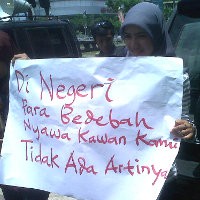 Di Negeri
Para Bedebah
Nyawa Kawan Kamu
Tidak Ada Artinya